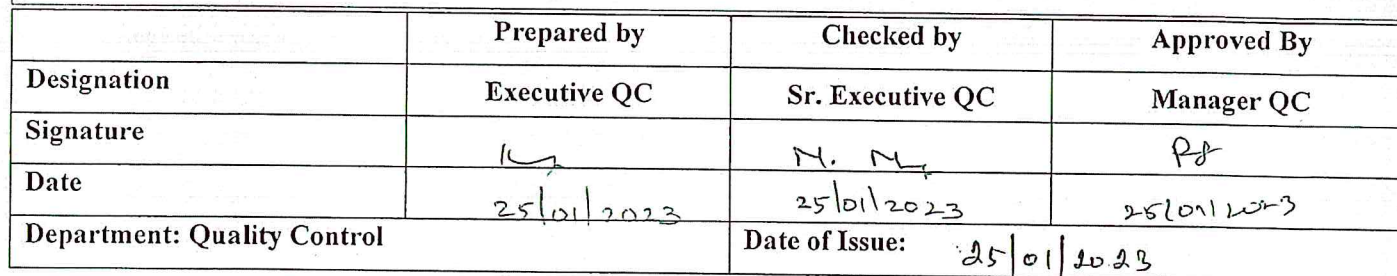 Prepared by Checked by Approved By
Designation Executive QC Sr. Executive QC Manager QC
Signature N. N
Date 25/01/2023 25/01/2023 25/01/2023
Department: Quality Control Date of Issue: 25/01/2023